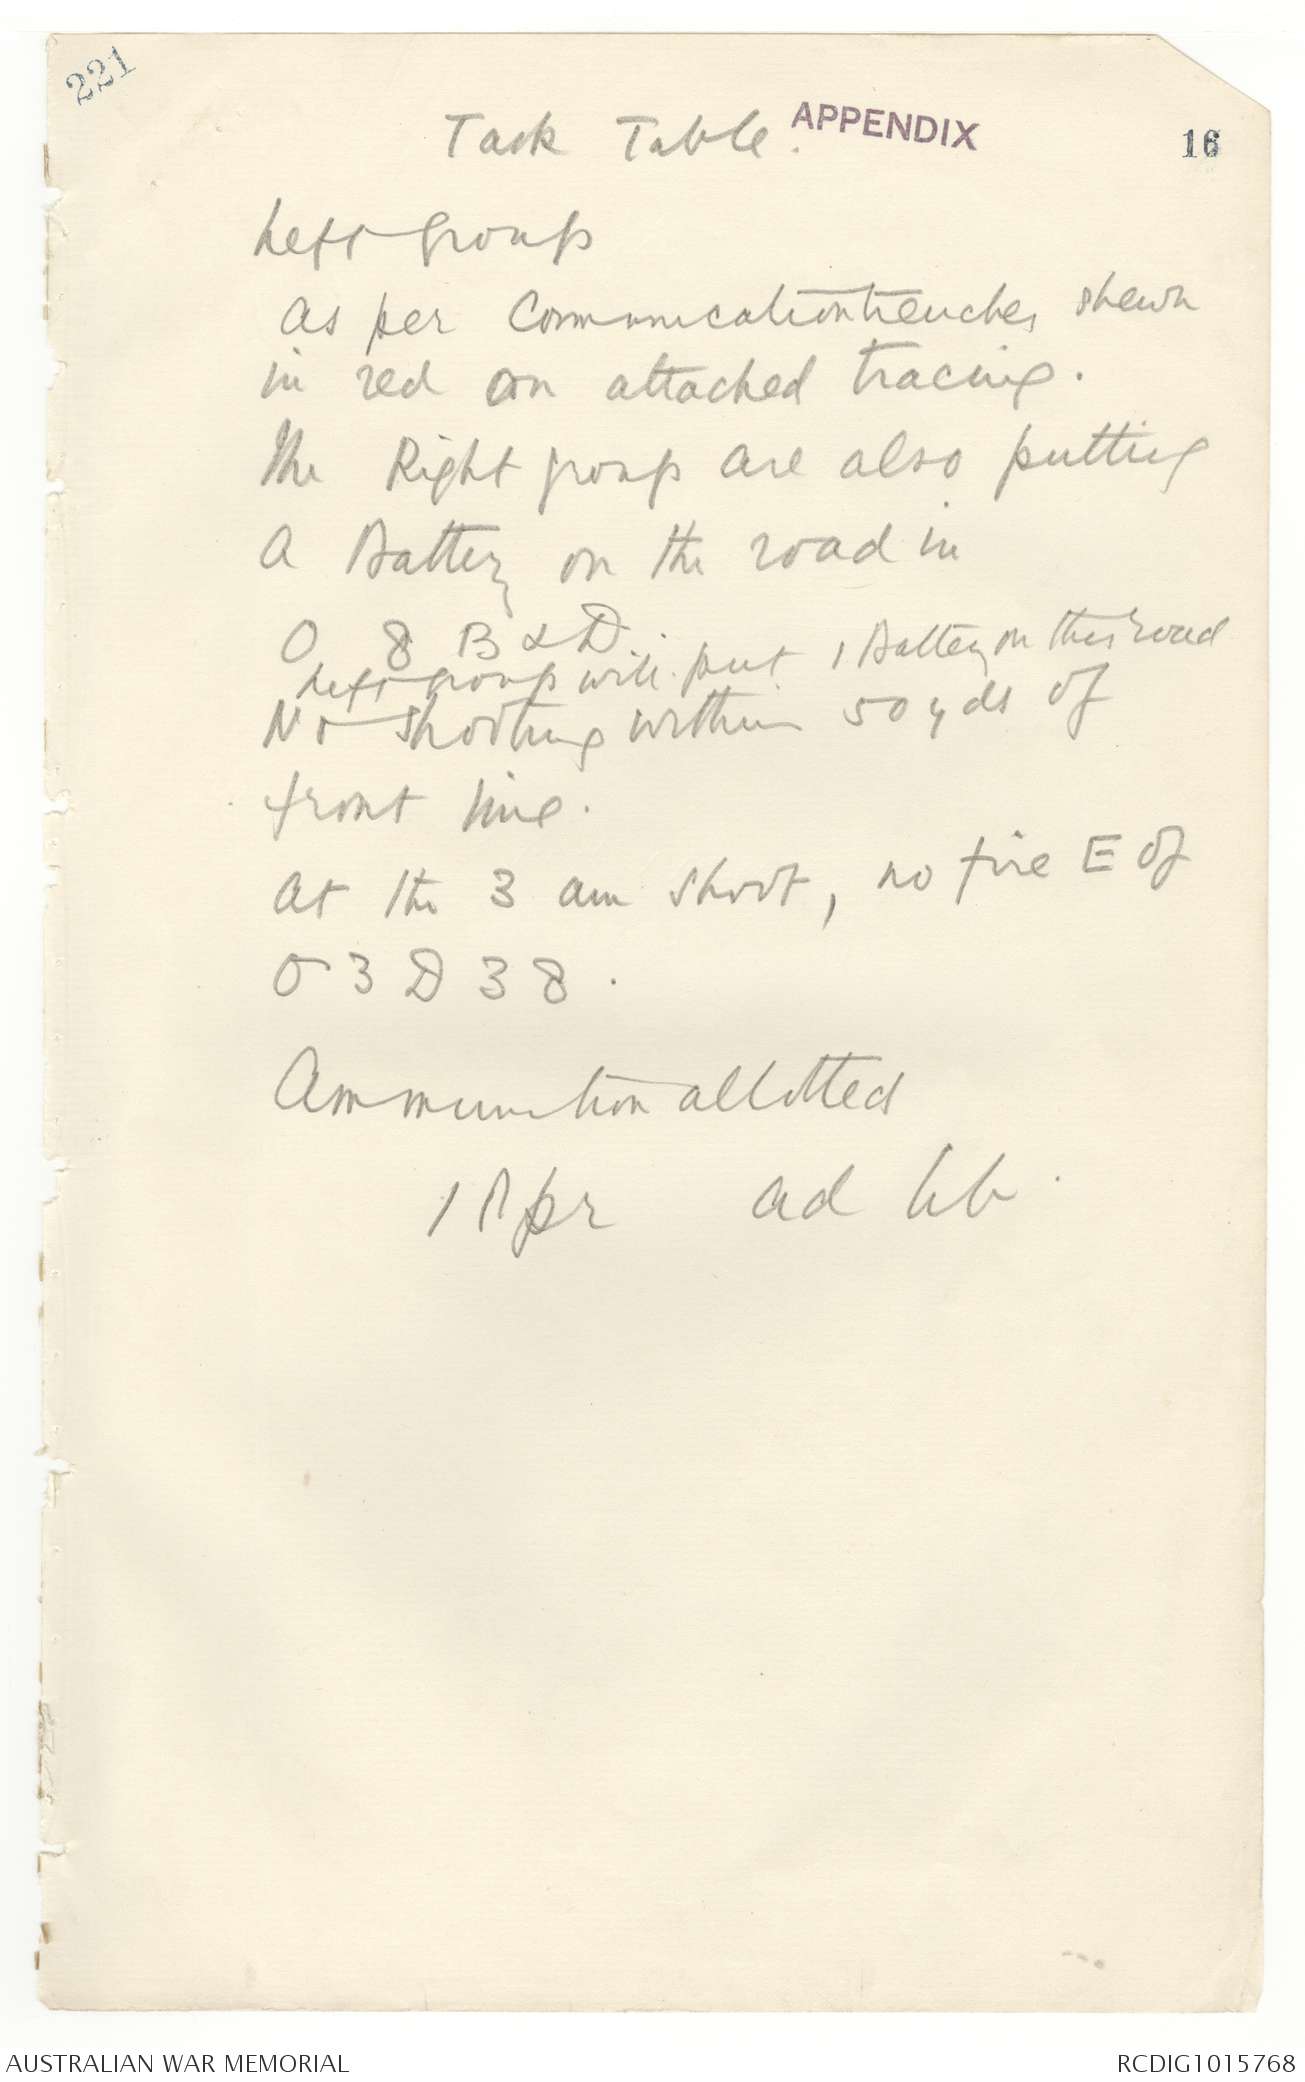 221
Task Table. APPENDIX
16
Left group
As per Communication trenches shewn
in red on attached tracing.
The Right group are also putting
a Battery on the road in
O 8 B & D.
Left group will put 1 Battery on this road
No shooting within 50 yds of
front line.
At the 3 am shoot, no fire E of
O 3 D 3 8.
Ammunition allotted
ad lib.
AUSTRALIAN WAR MEMORIAL
RCDIG1015768